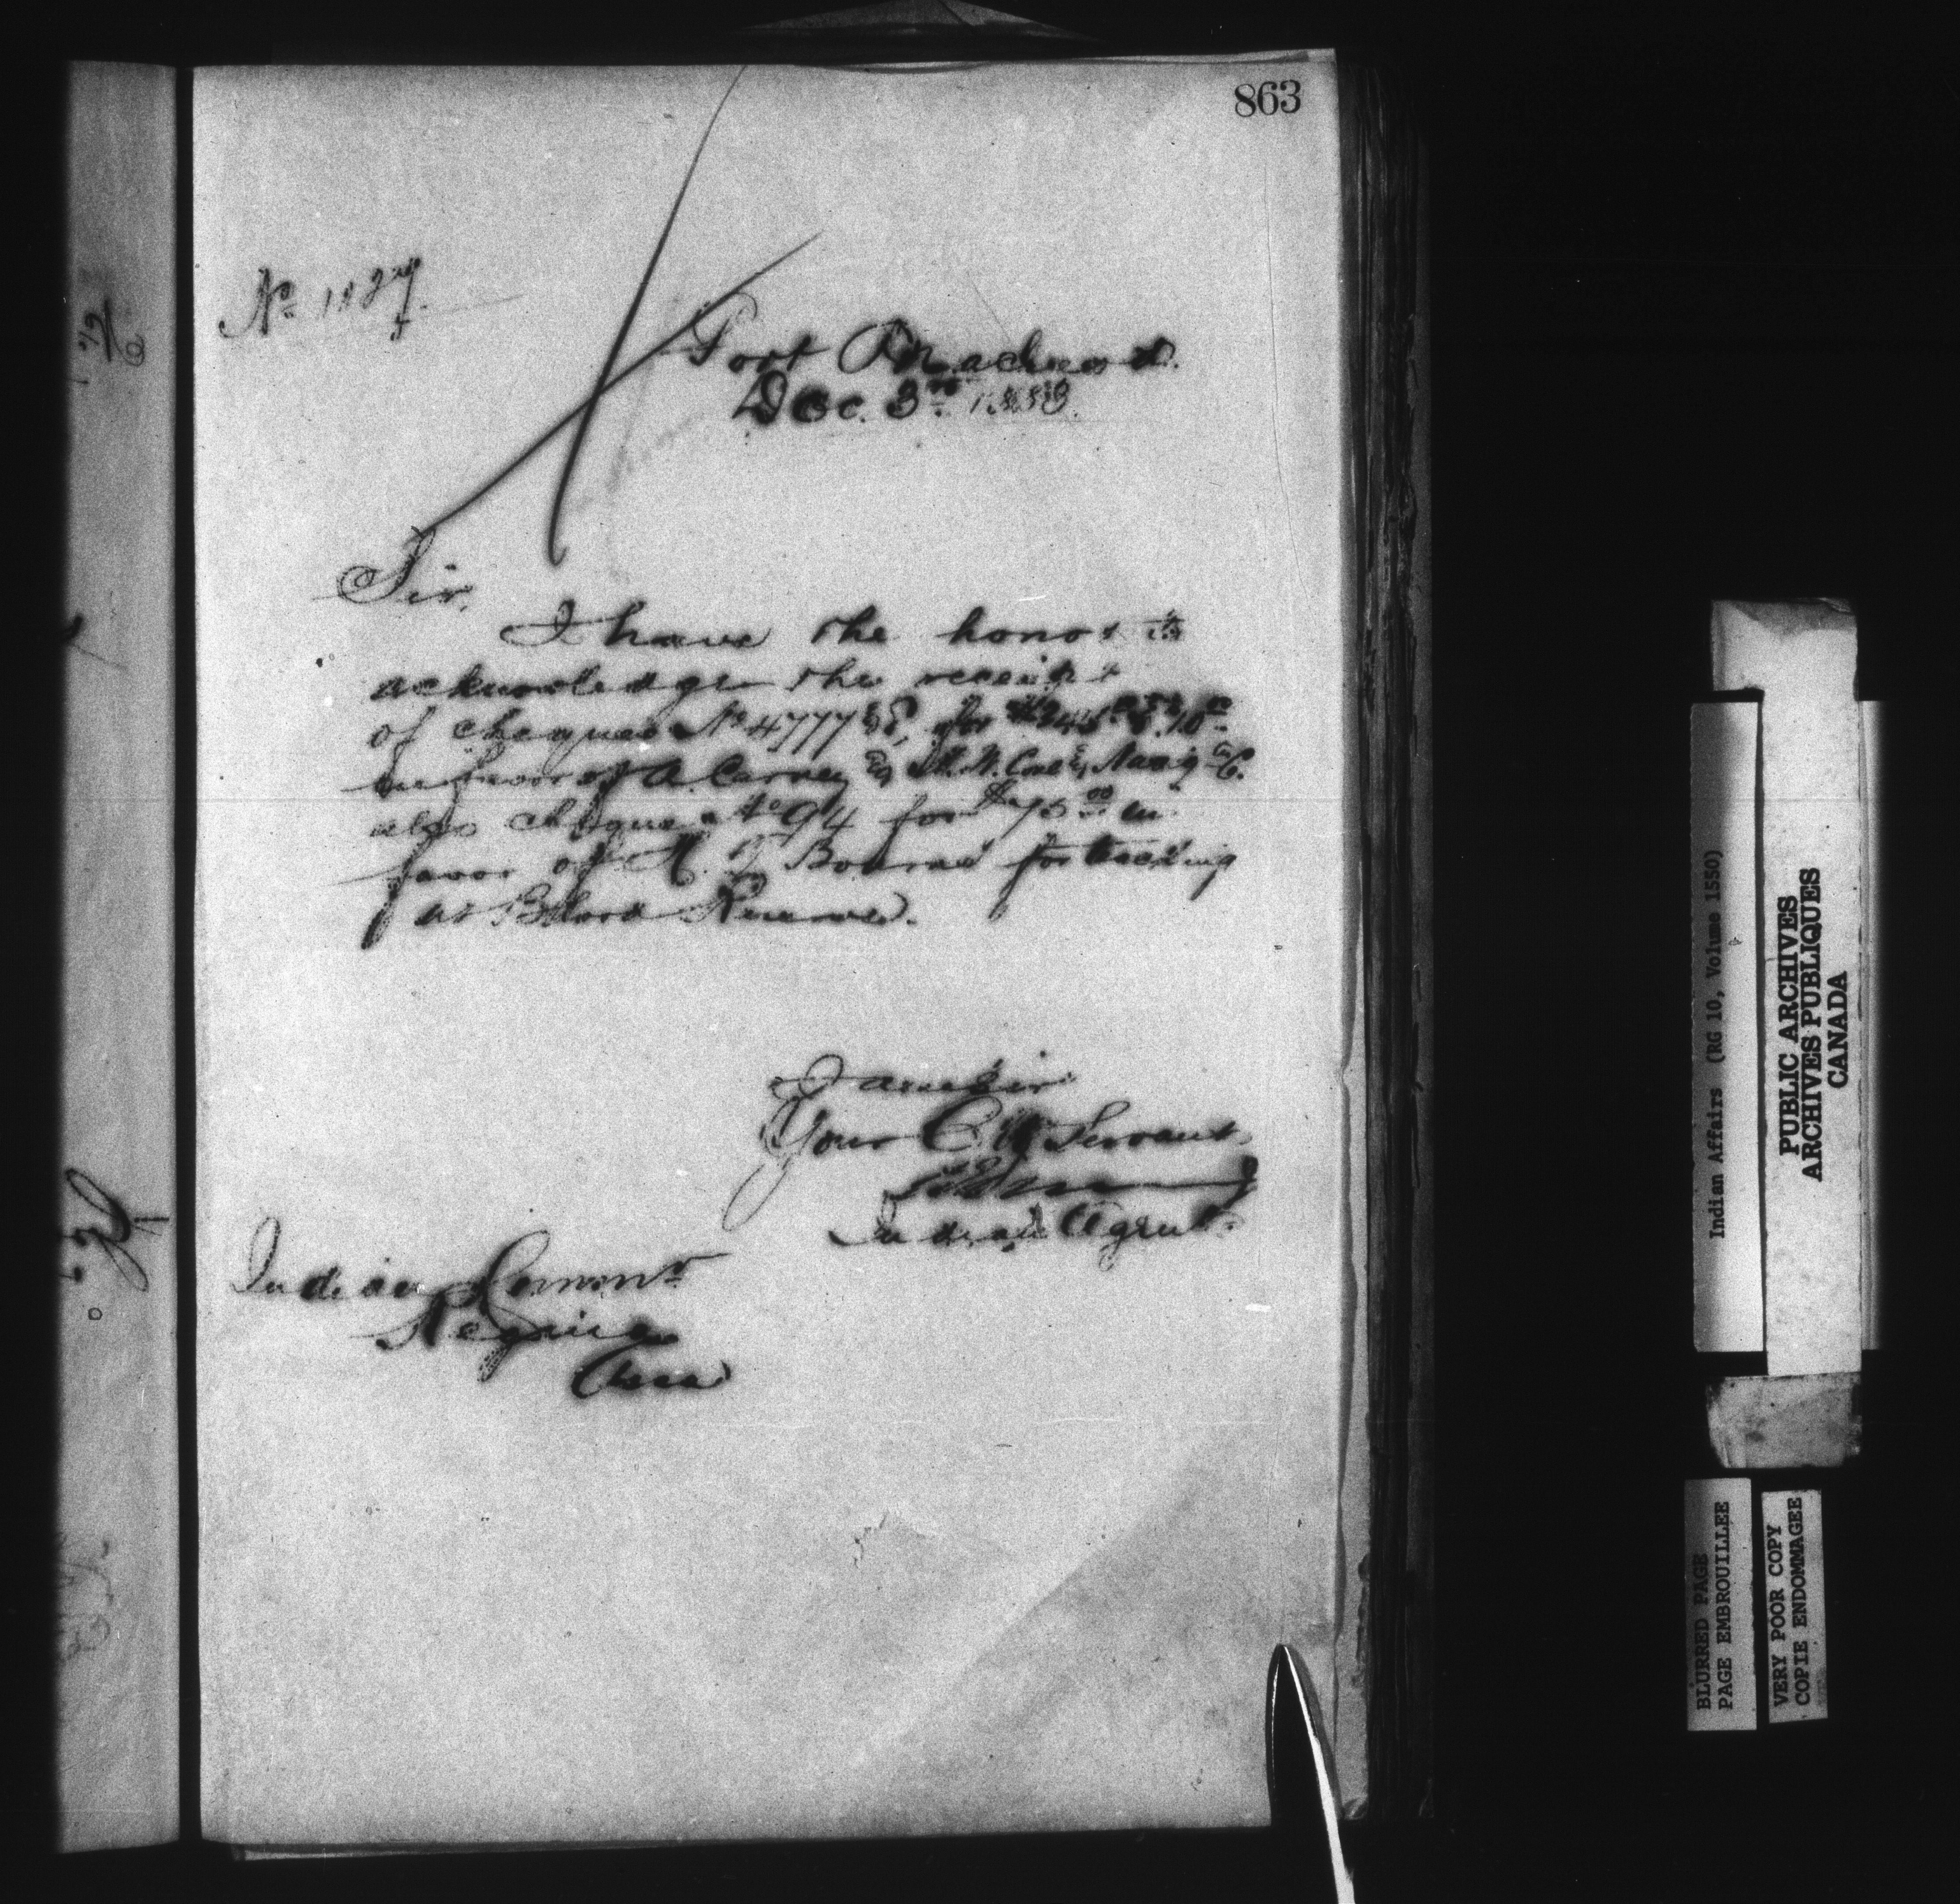 863
No 1127
Fort Macleod.
Dec. 3rd 1888.
Sir,
I have the honor to
acknowledge the receipt
of cheques No 4777 for
in favor of A. Carney & N.W. Coal & Navig Co.
also cheque No 94 for $75 00 in
favor of H. Bourne for teaching
at Blood Reserve.
I am Sir
Your Servant
Indian Agent.
Indian Commr
Regina
Assa
Indian Affairs (RG 10, Volume 1550)
PUBLIC ARCHIVES
ARCHIVES PUBLIQUES
CANADA
BLURRED PAGE
PAGE EMBROUILLEE
VERY POOR COPY
COPIE ENDOMMAGEE